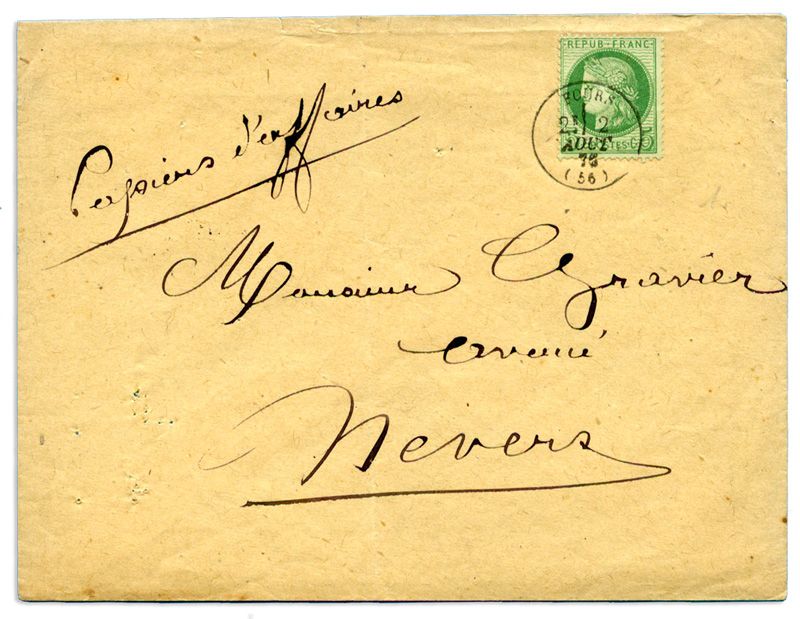 REPUB·FRANC·
FOURS
2E 2
AOUT
73
(56)
Papiers d'affaires
Monsieur Gravier
avoué
Nevers